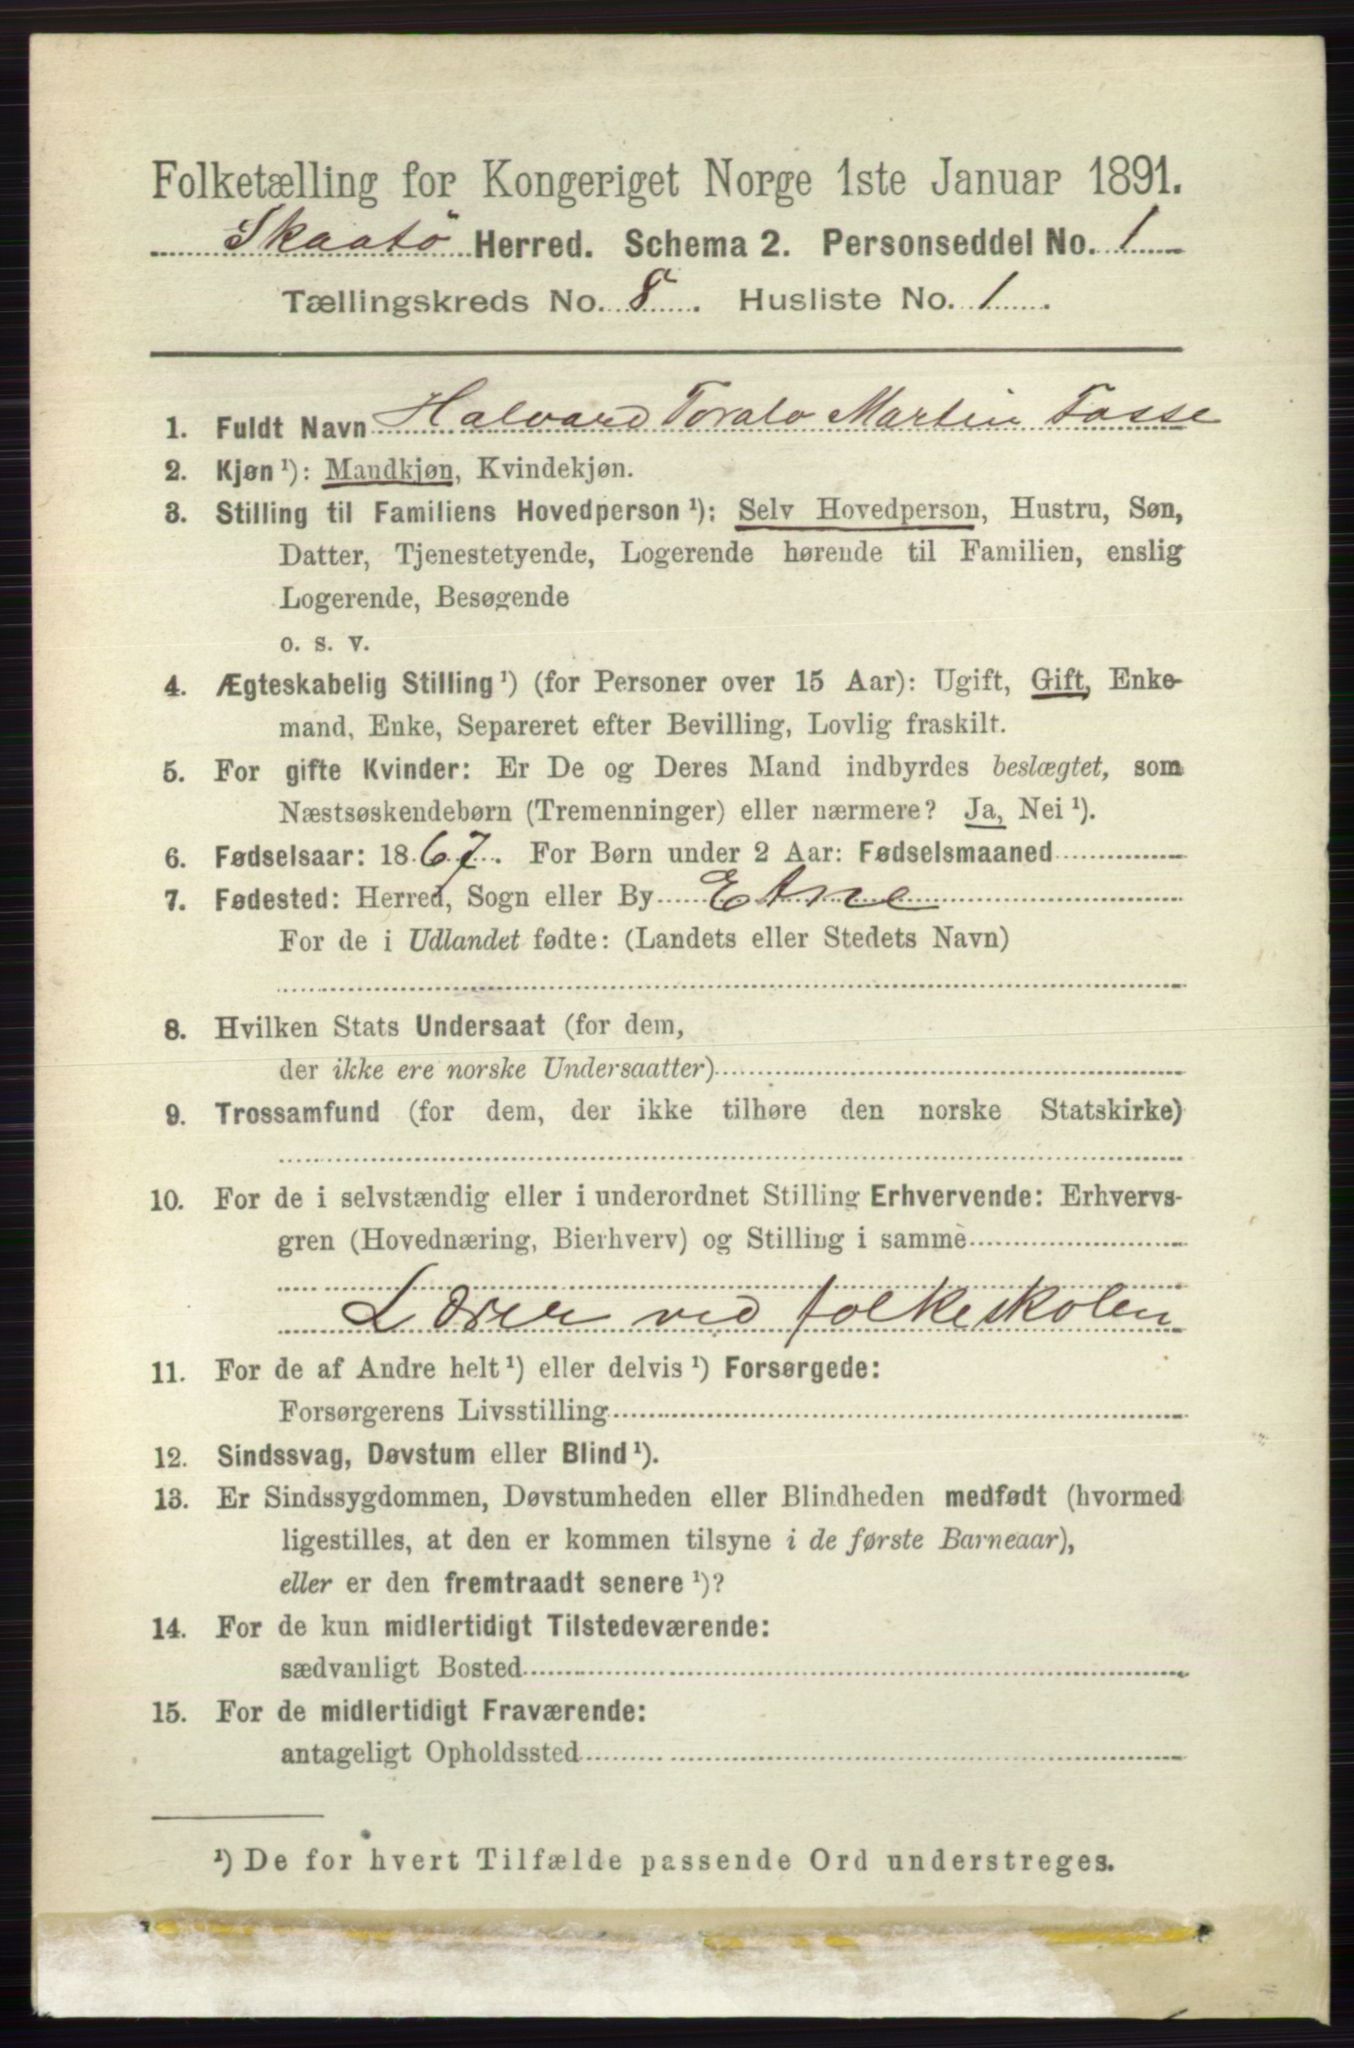 Folketælling for Kongeriget Norge 1ste Januar 1891.
Skaatö Herred. Schema 2. Personseddel No. 1
Tællingskreds No. 8. Husliste No. 1.
1. Fuldt Navn Halvard Toralv Martin Fosse
2. Kjøn ¹): Mandkjøn, Kvindekjøn.
3. Stilling til Familiens Hovedperson ¹): Selv Hovedperson, Hustru, Søn,
Datter, Tjenestetyende, Logerende hørende til Familien, enslig
Logerende, Besøgende
o. s. v.
4. Ægteskabelig Stilling ¹) (for Personer over 15 Aar): Ugift, Gift, Enke-
mand, Enke, Separeret efter Bevilling, Lovlig fraskilt.
5. For gifte Kvinder: Er De og Deres Mand indbyrdes beslægtet, som
Næstsøskendebørn (Tremenninger) eller nærmere? Ja, Nei ¹).
6. Fødselsaar: 1867. For Børn under 2 Aar: Fødselsmaaned
7. Fødested: Herred, Sogn eller By Etne
For de i Udlandet fødte: (Landets eller Stedets Navn)
8. Hvilken Stats Undersaat (for dem,
der ikke ere norske Undersaatter)
9. Trossamfund (for dem, der ikke tilhøre den norske Statskirke)
10. For de i selvstændig eller i underordnet Stilling Erhvervende: Erhvervs-
gren (Hovednæring, Bierhverv) og Stilling i samme
Lærer ved folkeskolen
11. For de af Andre helt ¹) eller delvis ¹) Forsørgede:
Forsørgerens Livsstilling
12. Sindssvag, Døvstum eller Blind ¹).
13. Er Sindssygdommen, Døvstumheden eller Blindheden medfødt (hvormed
ligestilles, at den er kommen tilsyne i de første Barneaar),
eller er den fremtraadt senere ¹)?
14. For de kun midlertidigt Tilstedeværende:
sædvanligt Bosted
15. For de midlertidigt Fraværende:
antageligt Opholdssted
¹) De for hvert Tilfælde passende Ord understreges.